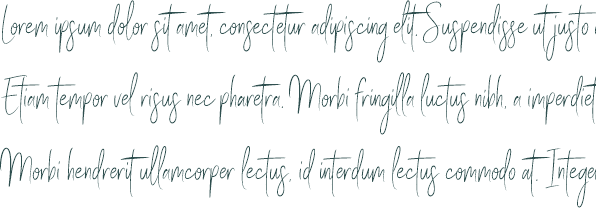 Lorem ipsum dolor sit amet, consectetur adipiscing elit. Suspendisse ut justo
Etiam tempor vel risus nec pharetra. Morbi fringilla luctus nibh, a imperdiet
Morbi hendrerit ullamcorper lectus, id interdum lectus commodo at. Intege